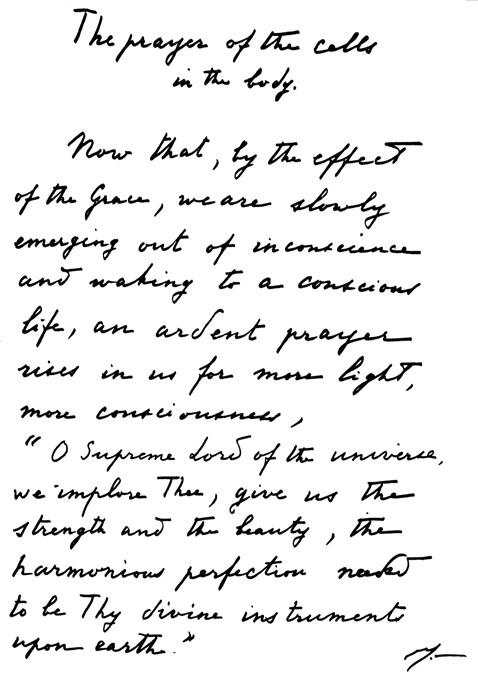 The prayer of the cells
in the body.
Now that, by the effect
of the Grace, we are slowly
emerging out of inconscience
and waking to a conscious
life, an ardent prayer
rises in us for more light,
more consciousness,
"O Supreme Lord of the universe,
we implore Thee, give us the
strength and the beauty, the
harmonious perfection needed
to be Thy divine instruments
upon earth."